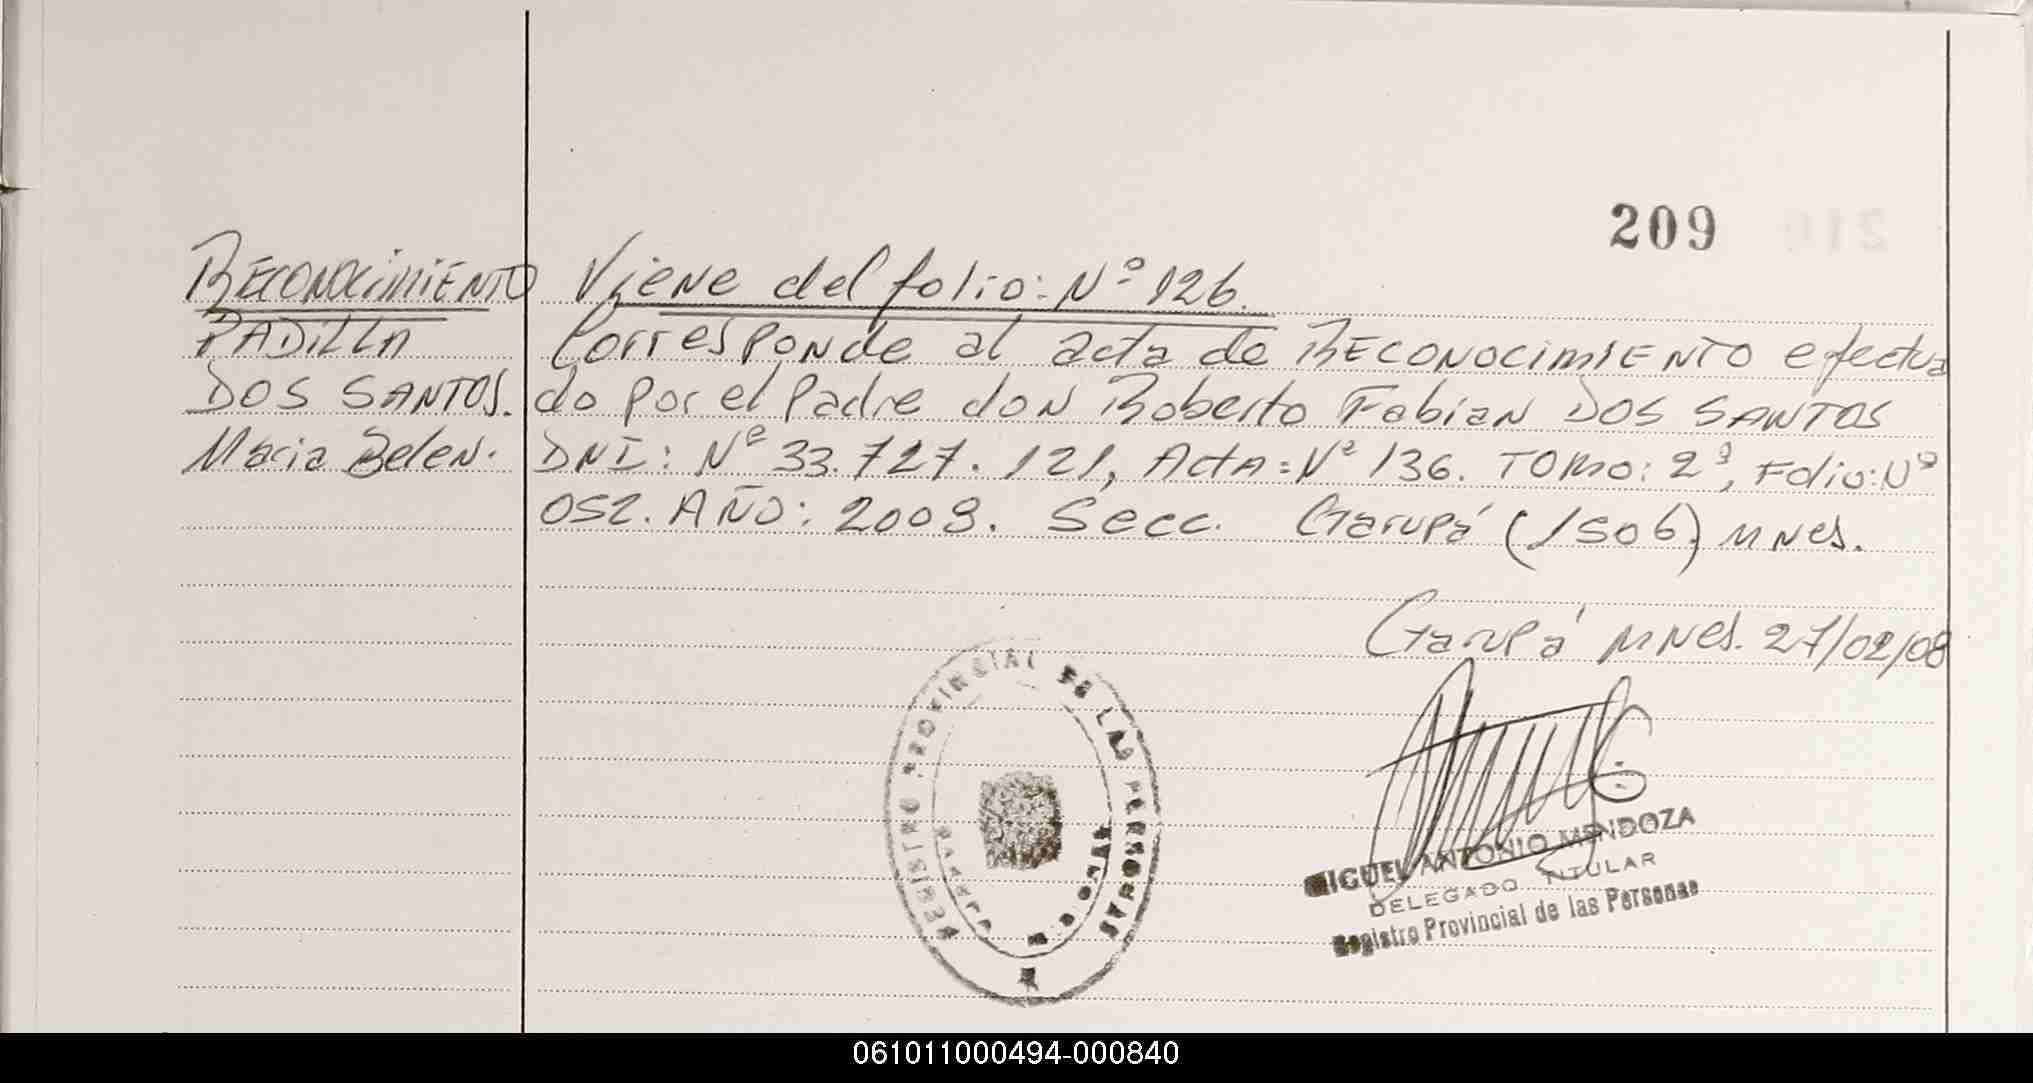 209
RECONOCIMIENTO
PADILLA
DOS SANTOS.
Maria Belen.
Viene del folio: Nº 126.
Corresponde al acta de RECONOCIMIENTO efectua
do por el Padre don Roberto Fabian DOS SANTOS
DNI: Nº 33.727.121, Acta: Nº 136. TOMO: 2º, Folio: Nº
052. AÑO: 2008. Secc. Garupá (1506) MNES.
Garupá MNES. 27/02/08
REGISTRO PROVINCIAL DE LAS PERSONAS
MIGUEL ANTONIO MENDOZA
DELEGADO TITULAR
Registro Provincial de las Personas
061011000494-000840